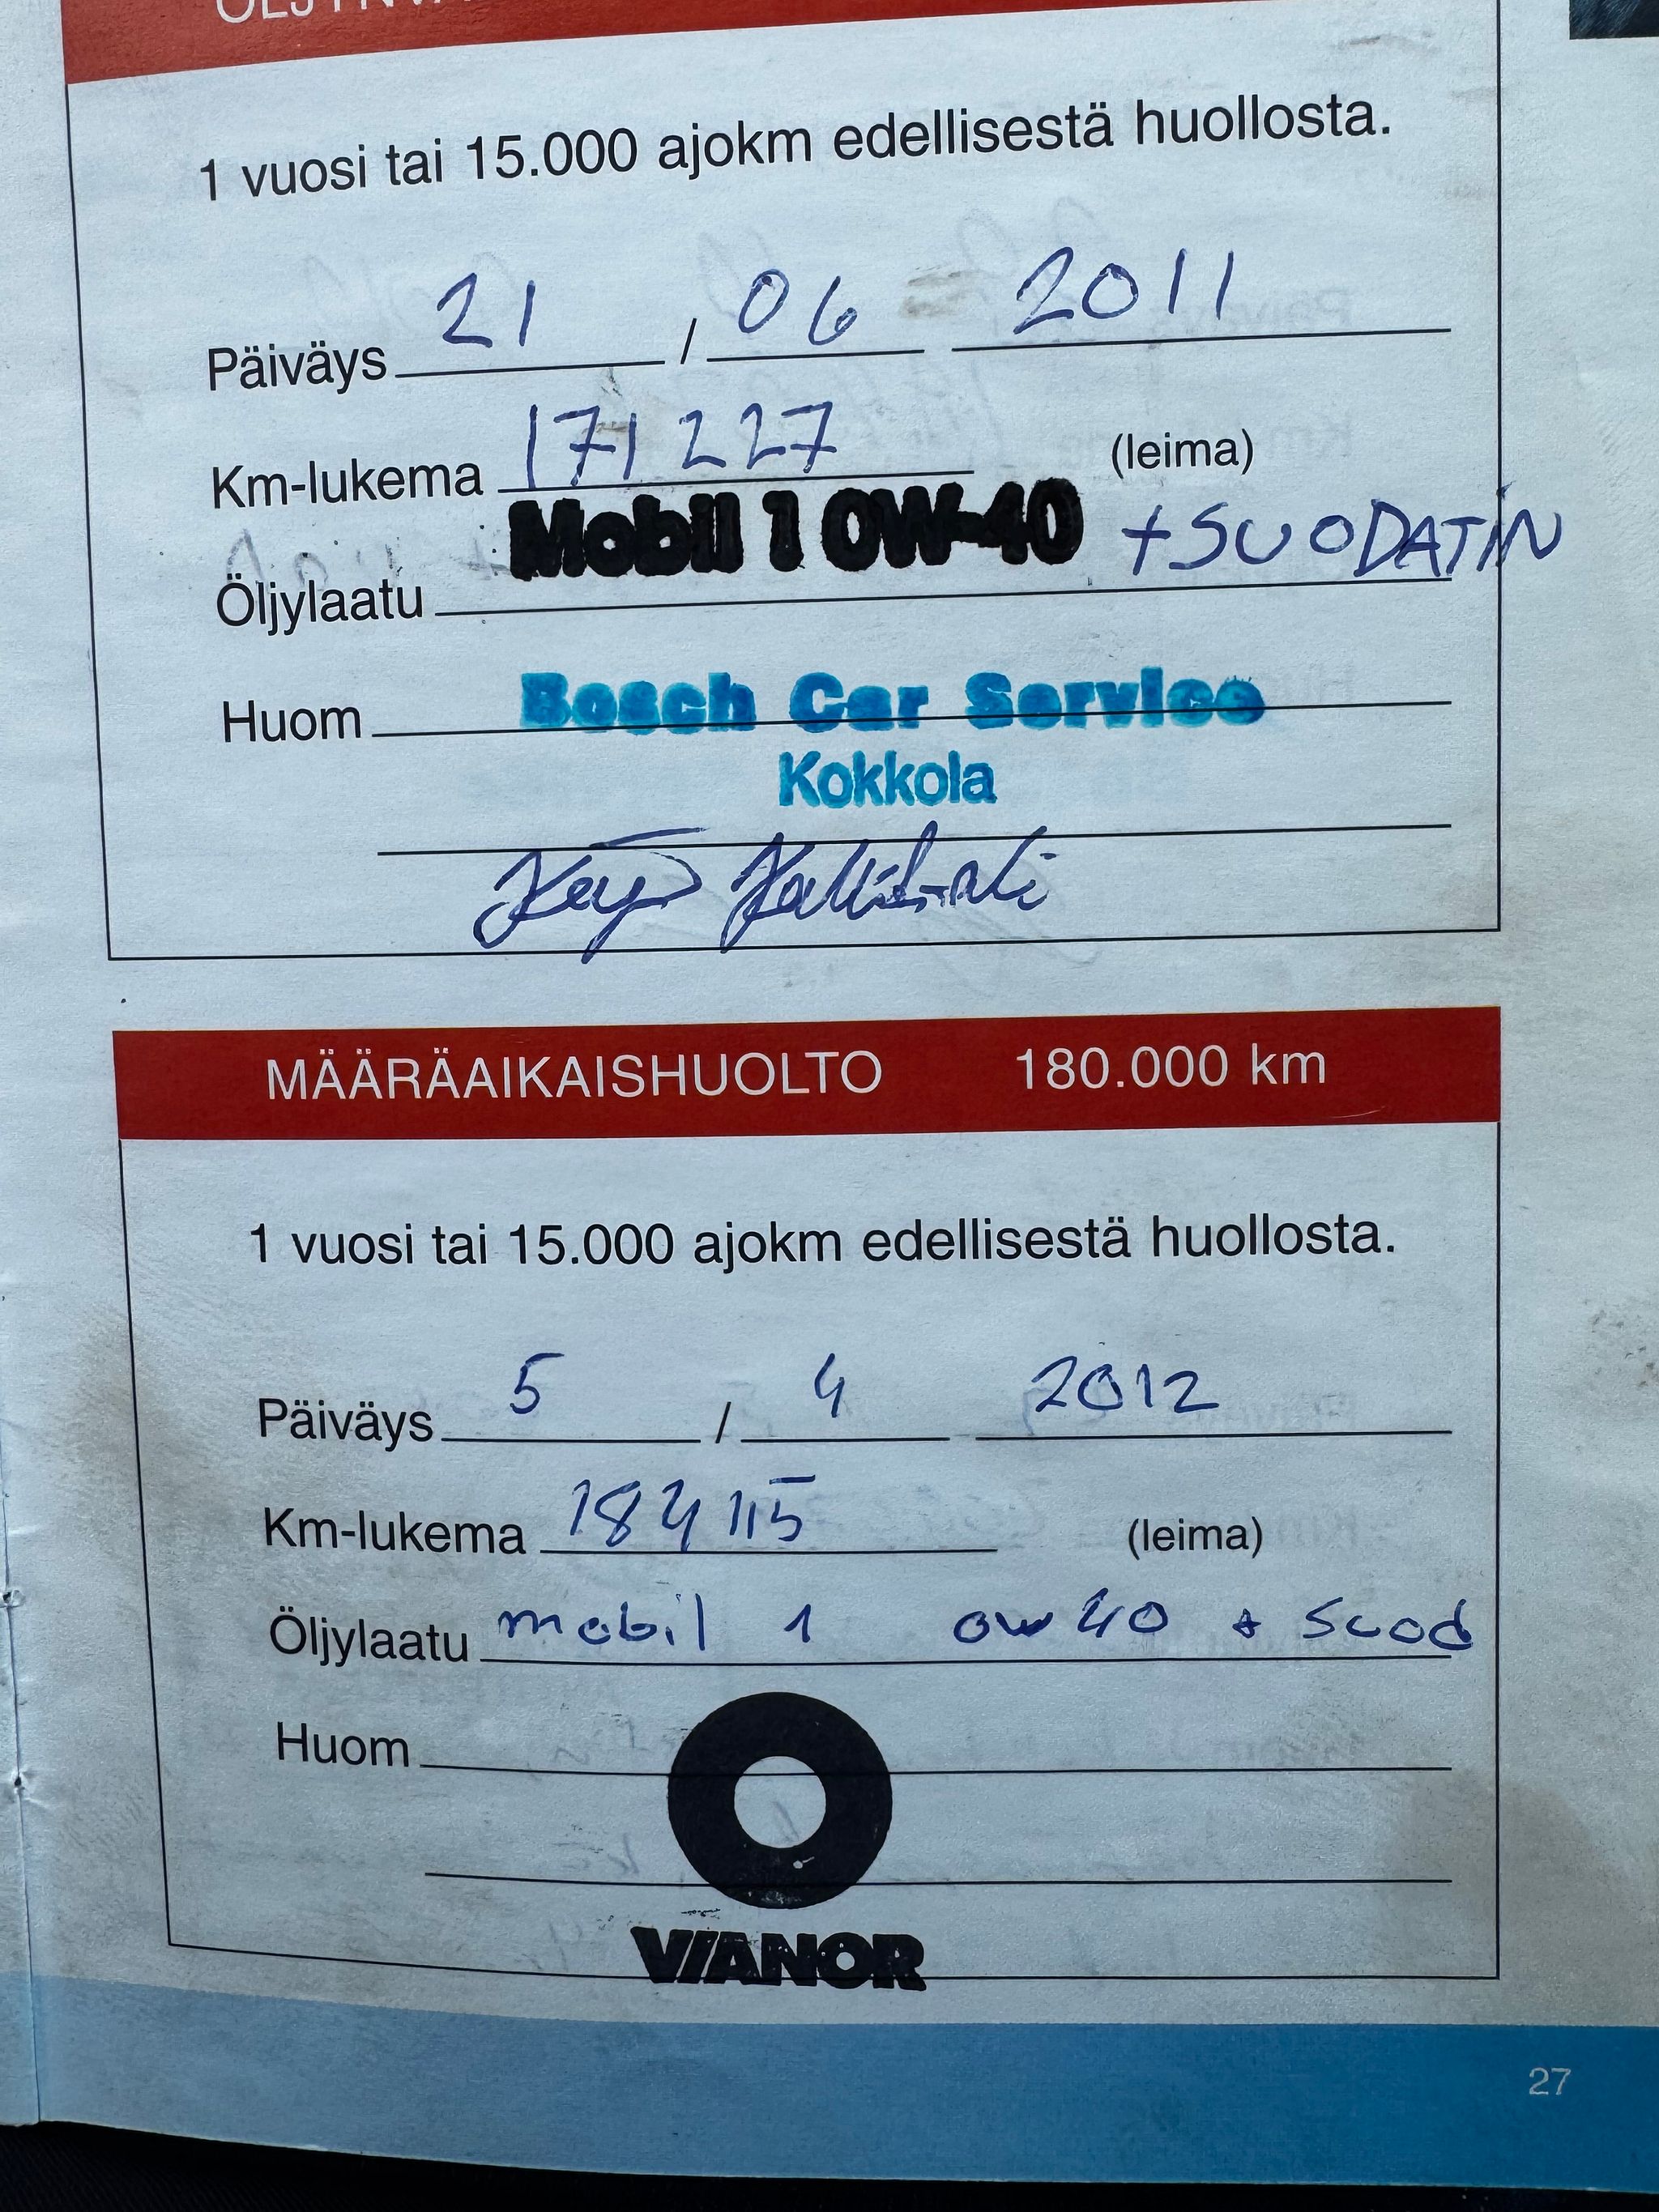 1 vuosi tai 15.000 ajokm edellisestä huollosta.
Päiväys 21 / 06 2011
Km-lukema 171 227 (leima)
Öljylaatu Mobil 1 0W-40 + SUODATIN
Huom Bosch Car Service
Kokkola
MÄÄRÄAIKAISHUOLTO 180.000 km
1 vuosi tai 15.000 ajokm edellisestä huollosta.
Päiväys 5 / 4 2012
Km-lukema 184 115 (leima)
Öljylaatu mobil 1 0w 40 + suod
Huom
VIANOR
27